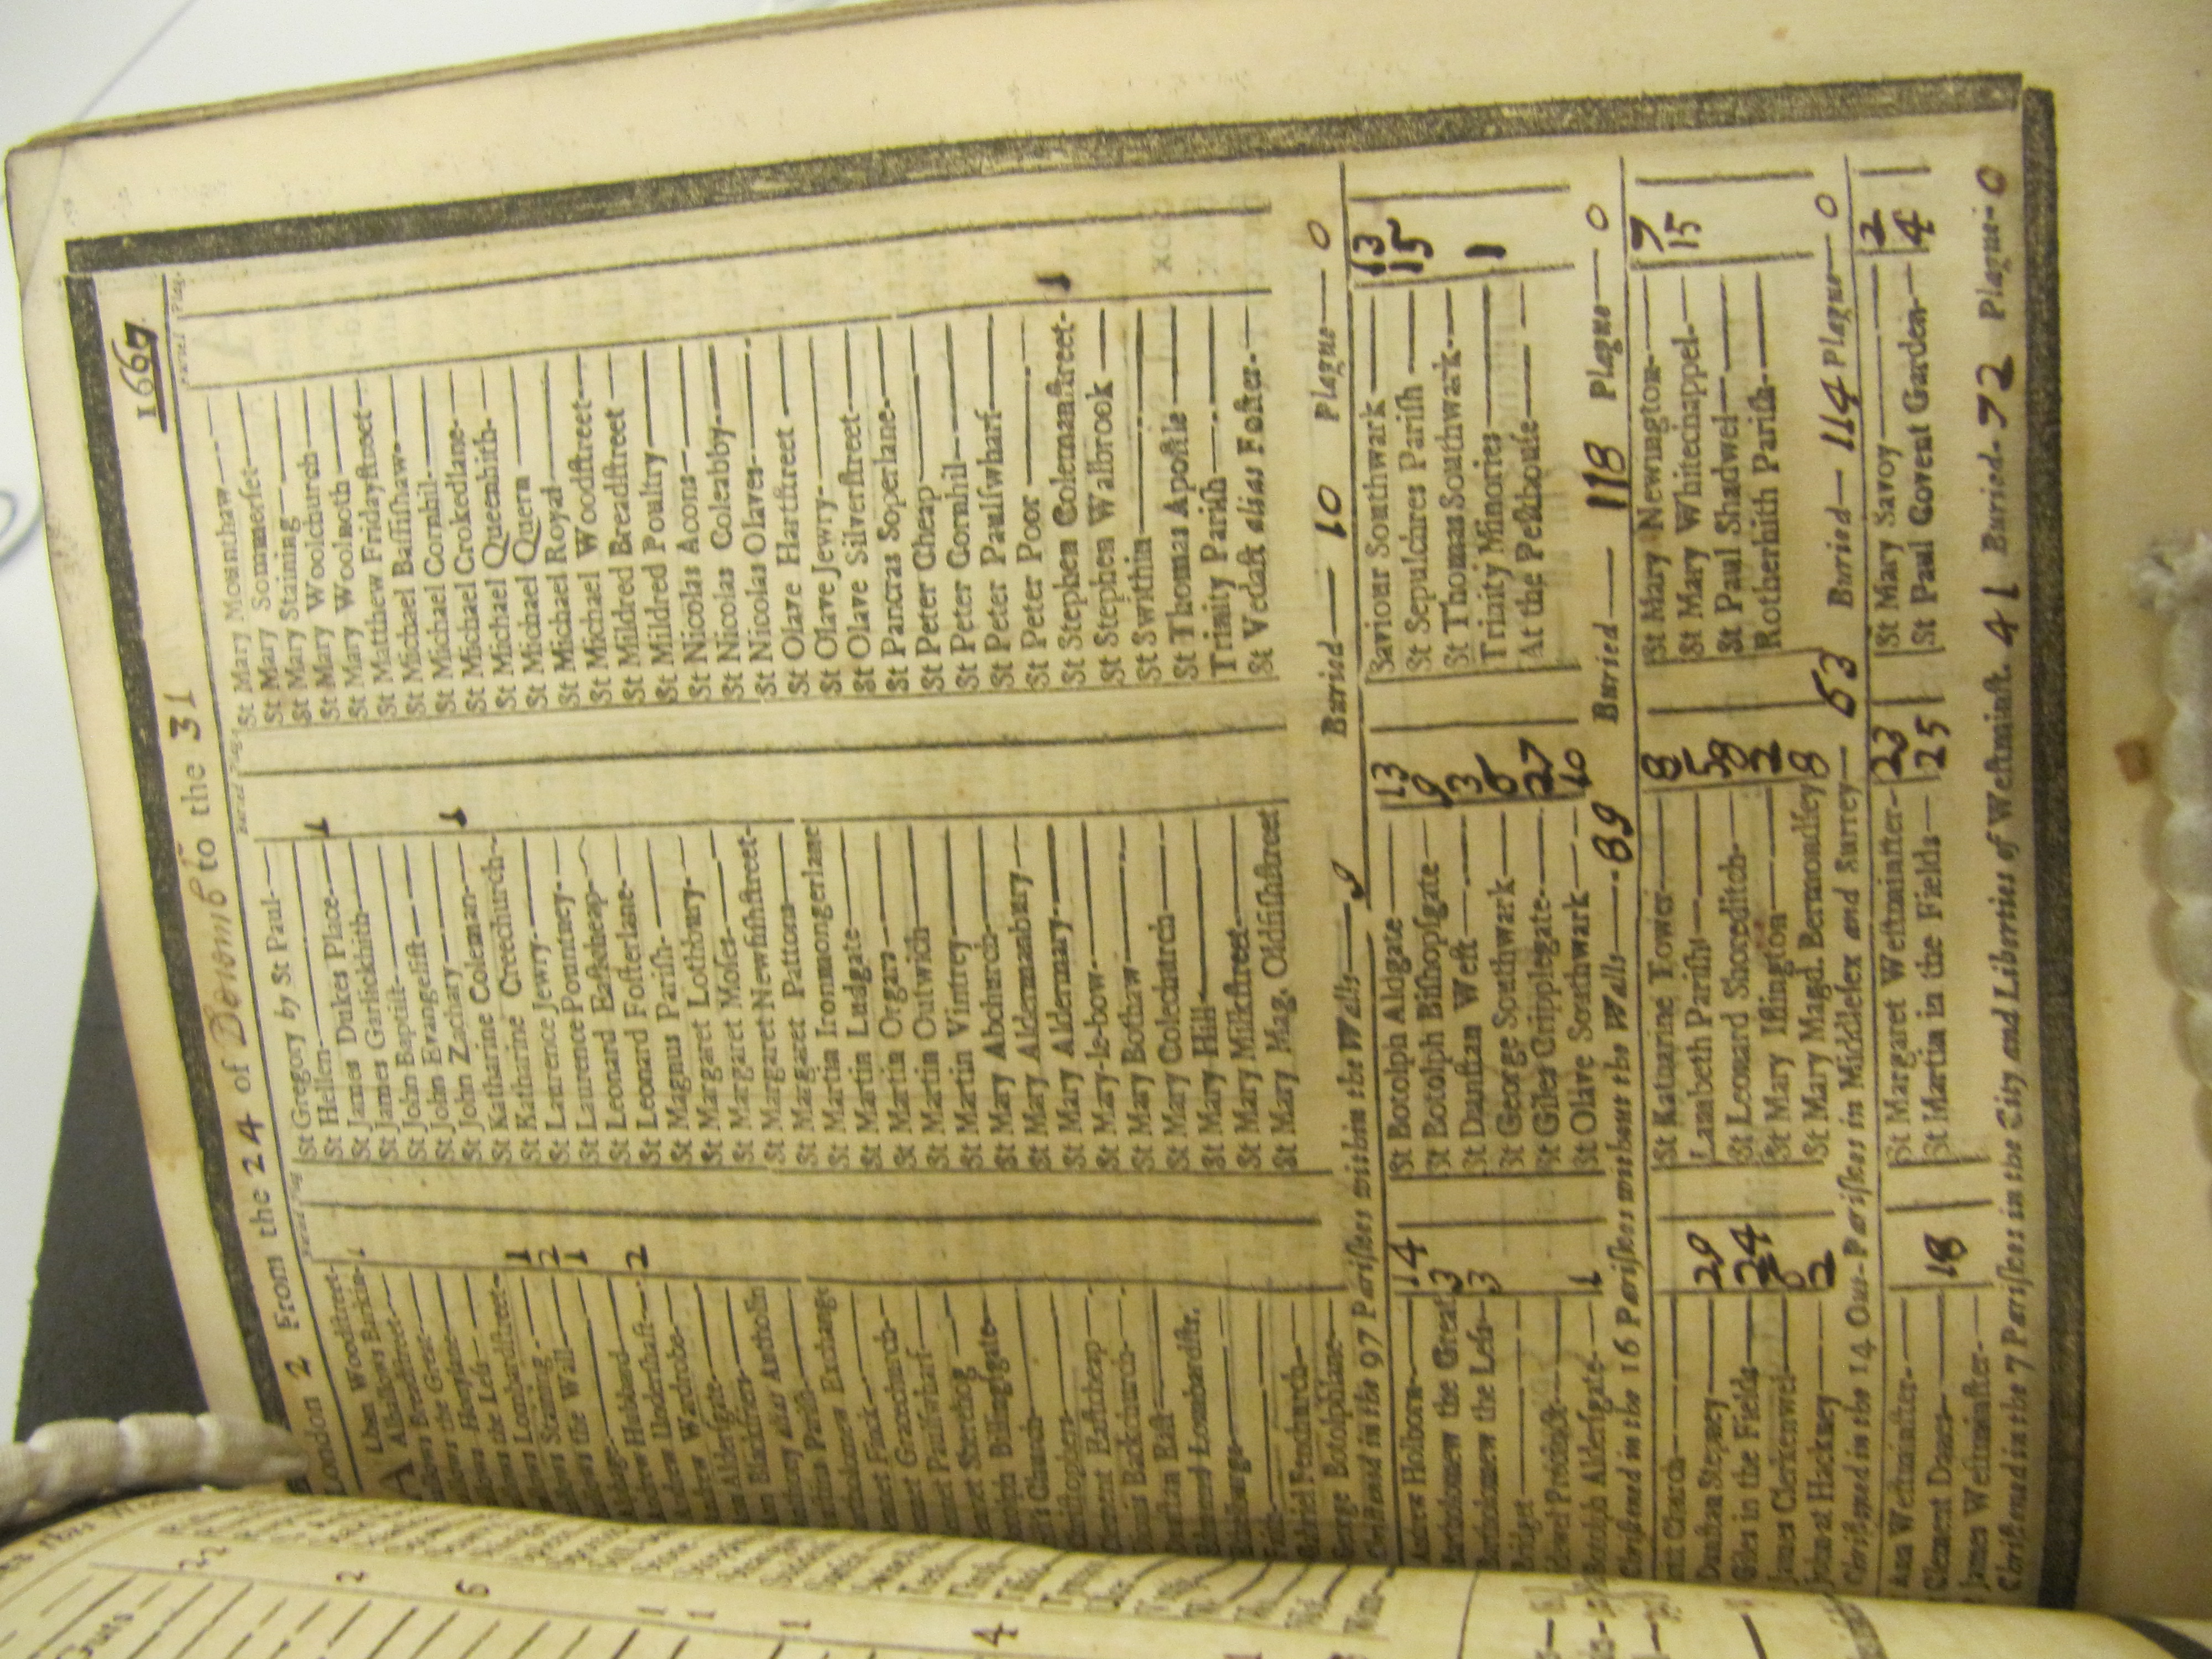 London 2 From the 24 of Decemb to the 31 1667
Buried Plag.
Alban Woodstreet-
Alhallows Barkin- 1
Alhallows Breadstreet
allows the Great
allows Honylane
allows the Less
allows Lombardstreet- 1
allows Staining 2
allows the Wall 1
Alphage
Andrew Hubbard
Andrew Undershaft 2
Andrew Wardrobe
Ann Aldersgate
Ann Blackfriers
Antholins alias Antholin
Austin Parish
Bartholomew Exchange
Bennet Finck
Bennet Gracechurch
Bennet Paulswharf
Bennet Sherehog
Botolph Billingsgate
Christ Church
Christophers
Clement Eastcheap
Dionis Backchurch
Dunstan East
Edmund Lombardstr.
Ethelburge
Faith
Gabriel Fenchurch
George Botolphlane
St Gregory by St Paul
St Hellen 1
St James Dukes Place
St James Garlickhith
St John Baptist
St John Evangelist
St John Zachary 1
St Katharine Coleman
St Katharine Creechurch
St Laurence Jewry
St Laurence Pountney
St Leonard Eastcheap
St Leonard Fosterlane
St Magnus Parish
St Margaret Lothbury
St Margaret Moses
St Margaret Newfishstreet
St Margaret Pattons
St Martin Ironmongerlane
St Martin Ludgate
St Martin Orgars
St Martin Outwich
St Martin Vintrey
St Mary Abchurch
St Mary Aldermanbury
St Mary Aldermary
St Mary-le-bow
St Mary Bothaw
St Mary Colechurch
St Mary Hill
St Mary Milkstreet
St Mary Mag. Oldfishstreet
St Mary Mounthaw
St Mary Sommerset
St Mary Staining
St Mary Woolchurch
St Mary Woolnoth
St Matthew Fridaystreet
St Michael Bassishaw
St Michael Cornhil
St Michael Crokedlane
St Michael Queenhith
St Michael Quern
St Michael Royal
St Michael Woodstreet
St Mildred Breadstreet
St Mildred Poultry
St Nicolas Acons
St Nicolas Coleabby
St Nicolas Olaves
St Olave Hartstreet
St Olave Jewry
St Olave Silverstreet
St Pancras Soperlane
St Peter Cheap
St Peter Cornhil
St Peter Paulswharf
St Peter Poor
St Stephen Colemanstreet 1
St Stephen Walbrook
St Swithin
St Thomas Apostle
Trinity Parish
St Vedast alias Foster
Christned in the 97 Parishes within the Walls 9 Buried 10 Plague 0
Andrew Holborn 14
Bartholomew the Great 3
Bartholomew the Less 3
Bridget
Bridewel Precinct
Botolph Aldersgate 1
St Botolph Aldgate 13
St Botolph Bishopsgate 9
St Dunstan West 3
St George Southwark 6
St Giles Cripplegate 27
St Olave Southwark 10
Saviour Southwark 13
St Sepulchres Parish 15
St Thomas Southwark
Trinity Minories 1
At the Pesthouse
Christned in the 16 Parishes without the Walls 89 Buried 118 Plague 0
Church
Dunstan Stepney 29
Giles in the Fields 24
James Clerkenwel 6
John at Hackney 2
St Katharine Tower 8
Lambeth Parish 5
St Leonard Shoreditch 8
St Mary Islington 2
St Mary Magd. Bermondsey 8
St Mary Newington 7
St Mary Whitechappel 15
St Paul Shadwel
Rotherhith Parish
Christned in the 14 Out-Parishes in Middlesex and Surrey 63 Buried 114 Plague 0
Ann Westminster
Clement Danes 18
James Westminster
St Margaret Westminster 23
St Martin in the Fields 25
St Mary Savoy 2
St Paul Covent Garden 4
Christned in the 7 Parishes in the City and Liberties of Westminst. 41 Buried 72 Plague 0